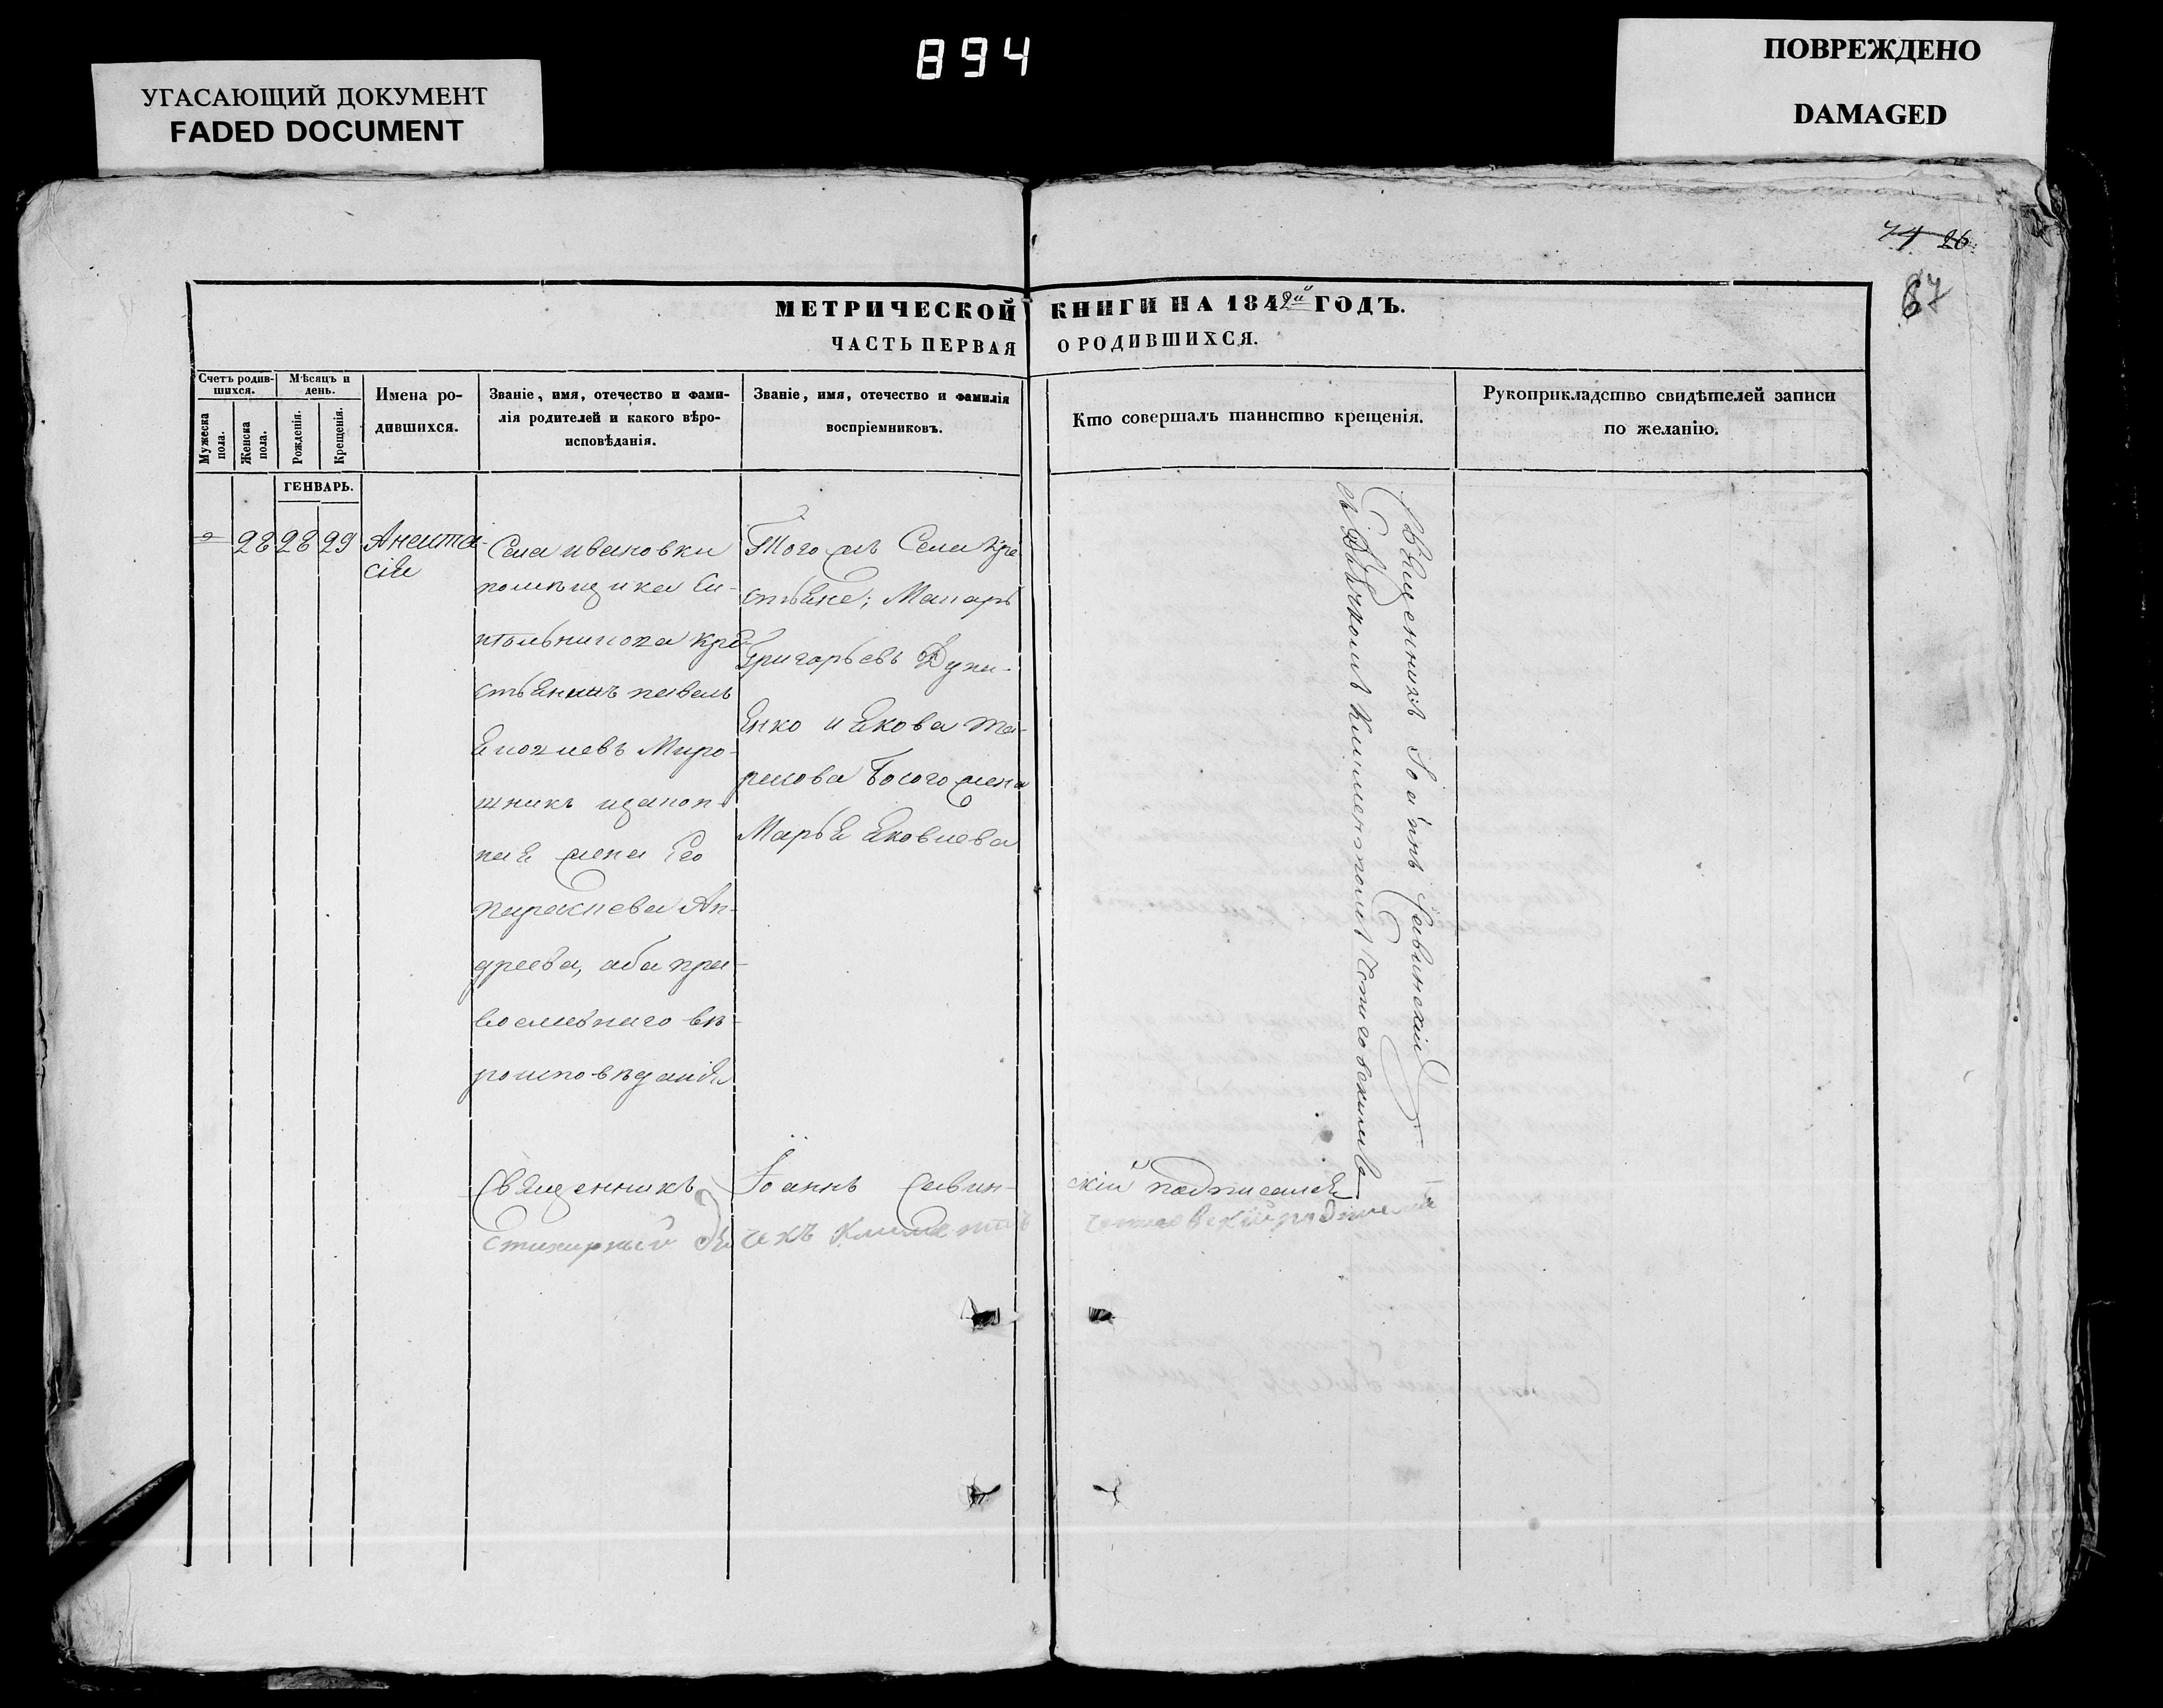 894
УГАСАЮЩИЙ ДОКУМЕНТ
FADED DOCUMENT
ПОВРЕЖДЕНО
DAMAGED
74 26.
67
МЕТРИЧЕСКОЙ КНИГИ НА 1842й ГОДЪ.
ЧАСТЬ ПЕРВАЯ О РОДИВШИХСЯ.
Счетъ родив-
шихся.
Мужеска
пола.
Женска
пола.
Мѣсяцъ и
день.
Рожденія.
Крещенія.
Имена ро-
дившихся.
Званіе, имя, отечество и фами-
лія родителей и какого вѣро-
исповѣданія.
Званіе, имя, отечество и фамилія
воспріемниковъ.
Кто совершалъ таинство крещенія.
Рукоприкладство свидѣтелей записи
по желанію.
ГЕНВАРЬ.
28 28 29
Анаста-
сія
Села ивановки
помѣщика Си-
кре-
стьянинъ павелъ
Миро-
шникъ изакон-
ная жена Его
параскева Ан-
дреева, оба пра-
вославнаго вѣ-
роисповѣданія
Того жъ Села Кре-
стьяне; Макаръ
Григорьевъ
Енко и Якова
Босого жена
Марья Яковлева
Священникъ Іоаннъ Савинскій
съ Дьячкомъ Климентомъ
Священникъ Іоаннъ Савин-
скій подписался
Стихарный дьячекъ Климентъ
подписался